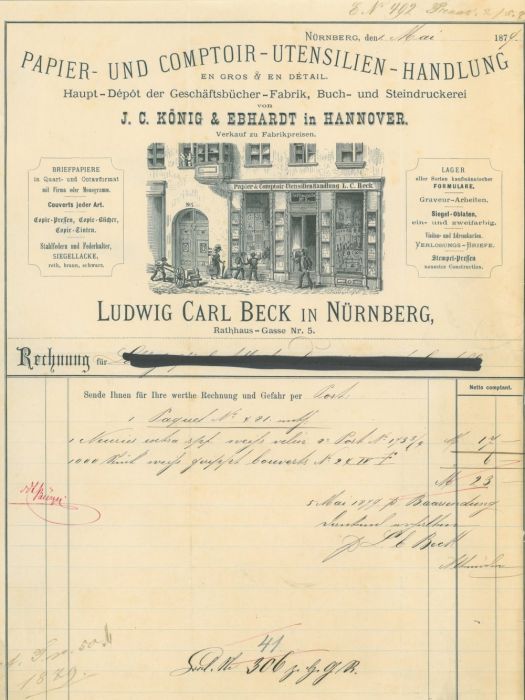 E. N° 492
NÜRNBERG, den 1. Mai 1879.
PAPIER- UND COMPTOIR-UTENSILIEN-HANDLUNG
EN GROS & EN DÉTAIL.
Haupt-Dépôt der Geschäftsbücher-Fabrik, Buch- und Steindruckerei
von
J. C. KÖNIG & EBHARDT in HANNOVER.
Verkauf zu Fabrikpreisen.
BRIEFPAPIERE
in Quart- und Octavformat
mit Firma oder Monogramm.
Couverts jeder Art.
Copir-Pressen, Copir-Bücher,
Copir-Tinten.
Stahlfedern und Federhalter,
SIEGELLACKE,
roth, braun, schwarz.
Papier & Comptoir-Utensilien Handlung L. C. Beck.
No 5
LAGER
aller Sorten kaufmännischer
FORMULARE.
Graveur-Arbeiten.
Siegel-Oblaten,
ein- und zweifarbig.
Visiten- und Adresskarten.
VERLOOSUNGS-BRIEFE.
Stempel-Pressen
neuester Construction.
LUDWIG CARL BECK IN NÜRNBERG,
Rathhaus-Gasse Nr. 5.
Rechnung für
Netto comptant.
Sende Ihnen für Ihre werthe Rechnung und Gefahr per Post:
1 Paquet N° 421.
1 Neuries extra weiss velin Post N° M 17 —
1000 Stück weiss gerippt Couverts N° 24 IV F 6 —
M 23 —
5 Mai 1879 p. Baarsendung
dankend erhalten
p. L. C. Beck
41
306
1879.